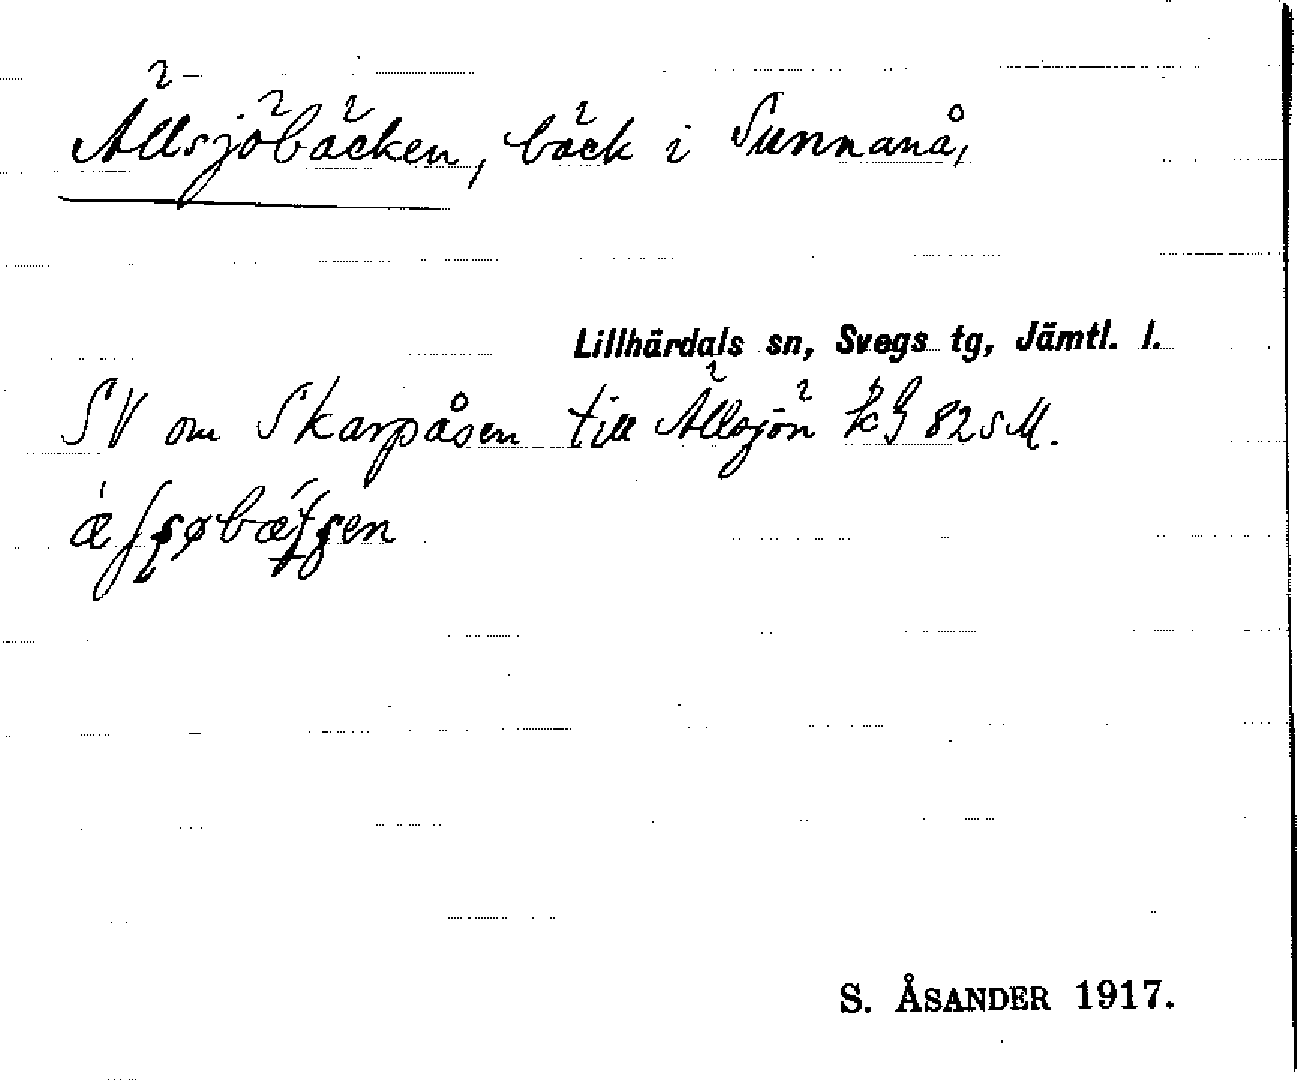 Ällsjöbäcken, bäck i Sunnanå,
Lillhärdals sn, Svegs tg, Jämtl. l.
SV om Skarpåsen till Ällsjön kg 82 SM.
S. ÅSANDER 1917.